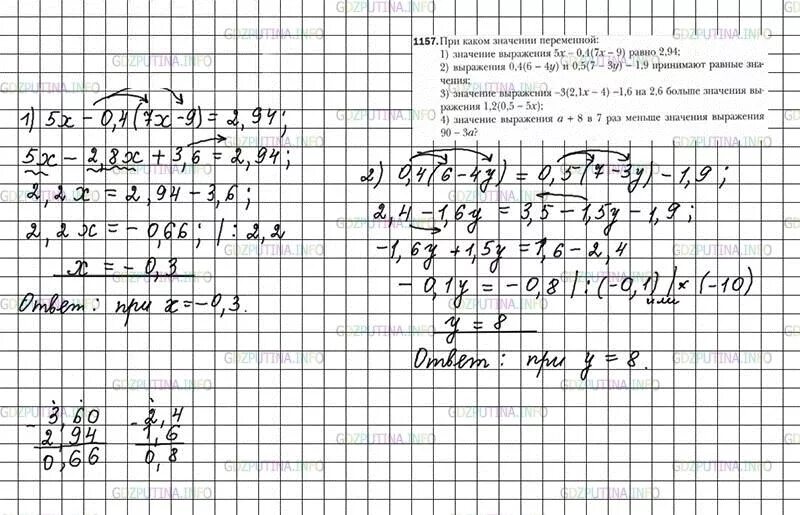 1157. При каком значении переменной:
1) значение выражения 5x − 0,4(7x − 9) равно 2,94;
2) выражения 0,4(6 − 4y) и 0,5(7 − 3y) − 1,9 принимают равные зна-
чения;
3) значение выражения −3(2,1x − 4) −1,6 на 2,6 больше значения вы-
ражения 1,2(0,5 − 5x);
4) значение выражения a + 8 в 7 раз меньше значения выражения
90 − 3a?
1) 5x − 0,4(7x − 9) = 2,94;
5x − 2,8x + 3,6 = 2,94;
2,2x = 2,94 − 3,6;
2,2x = −0,66; | : 2,2
x = −0,3
Ответ: при x = −0,3.
3,60
− 2,94
0,66
2,4
− 1,6
0,8
2) 0,4(6 − 4y) = 0,5(7 − 3y) − 1,9;
2,4 − 1,6y = 3,5 − 1,5y − 1,9;
−1,6y + 1,5y = 1,6 − 2,4
−0,1y = −0,8 | : (−0,1) | × (−10)
или
y = 8
Ответ: при y = 8.
GDZPUTINA.INFO